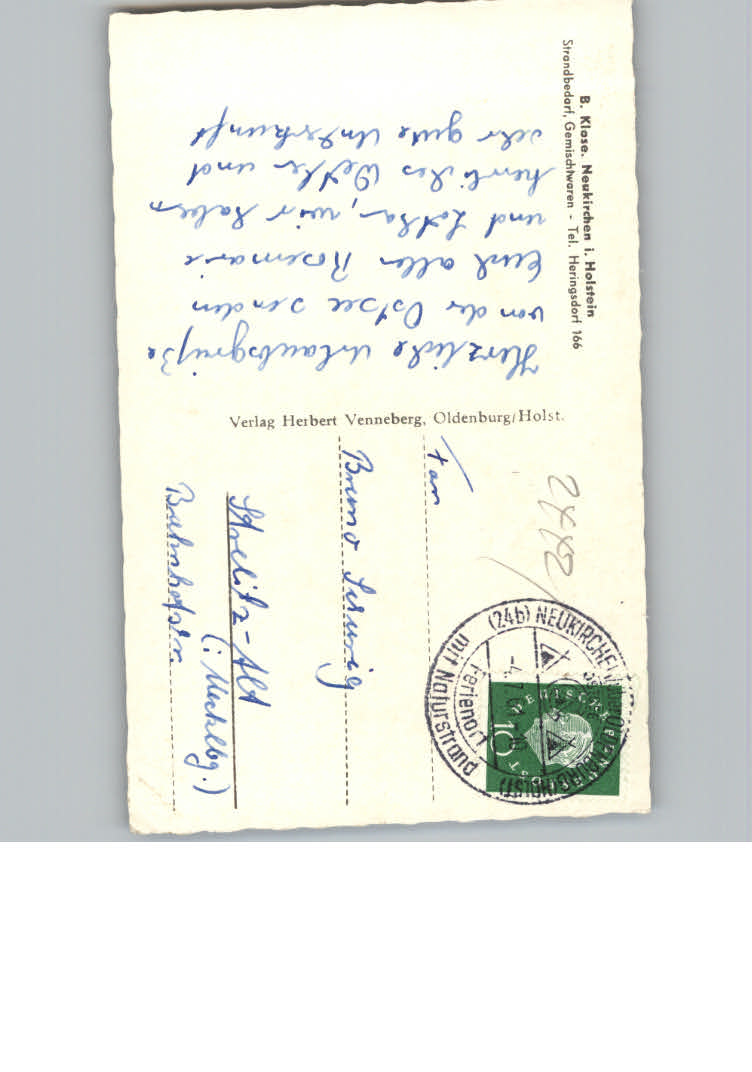 B. Klose. Neukirchen i. Holstein
Strandbedarf, Gemischtwaren - Tel. Heringsdorf 166
Herzliche Urlaubsgrüße
von der Ostsee senden
Euch allen Rosemarie
und Lothar, wir haben
herrliches Wetter und
sehr gute Unterkunft
Verlag Herbert Venneberg, Oldenburg/Holst.
2442
(24b) NEUKIRCHEN
Ferienort
mit Naturstrand
10
Fam
Bruno
Strelitz-Alt
(i. Mecklbg.)
Bahnhofstr.